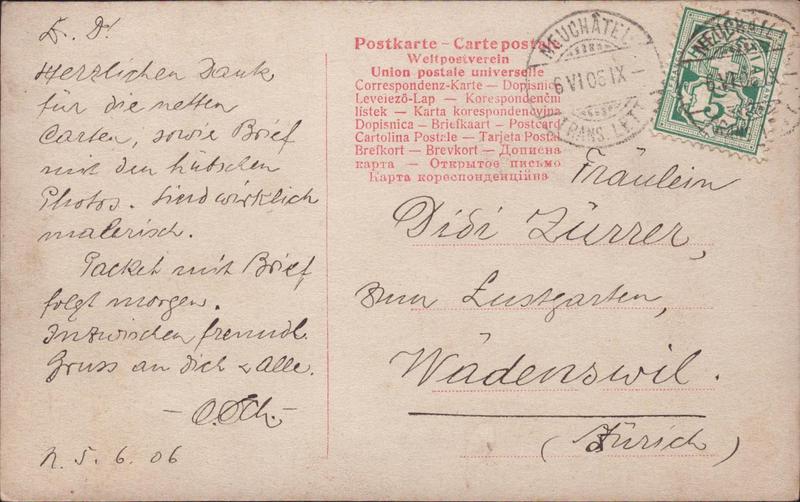 L. D!
Herzlichen Dank
für die netten
Carten, sowie Brief
mit den hübschen
Photos. Sind wirklich
malerisch.
Packet mit Brief
folgt morgen.
Inzwischen freundl.
Gruss an Dich & Alle.
N. 5. 6. 06
Postkarte – Carte postale
Weltpostverein
Union postale universelle
Correspondenz-Karte – Dopisnice
Levelező-Lap – Korespondenční
lístek – Karta korespondencyjna
Dopisnica – Briefkaart – Postcard
Cartolina Postale – Tarjeta Postal
Brefkort – Brevkort – Дописна
карта – Открытое письмо
Карта кореспонденційна
NEUCHÂTEL
6 VI 06 IX
TRANS. LETT.
5
Fräulein
Didi Zürrer,
zum Lustgarten,
Wädenswil.
(Zürich)